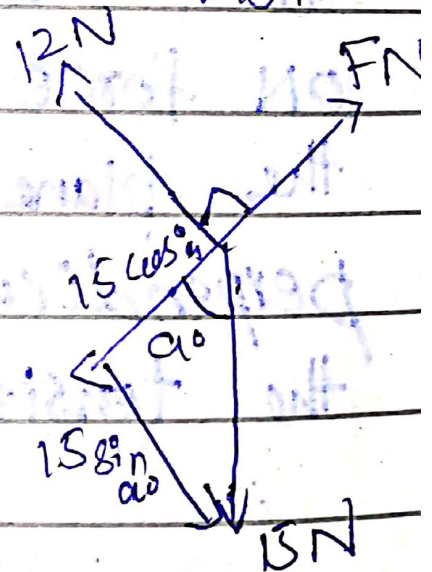 12N
FN
15 cos a°
a°
15 sin a°
15N